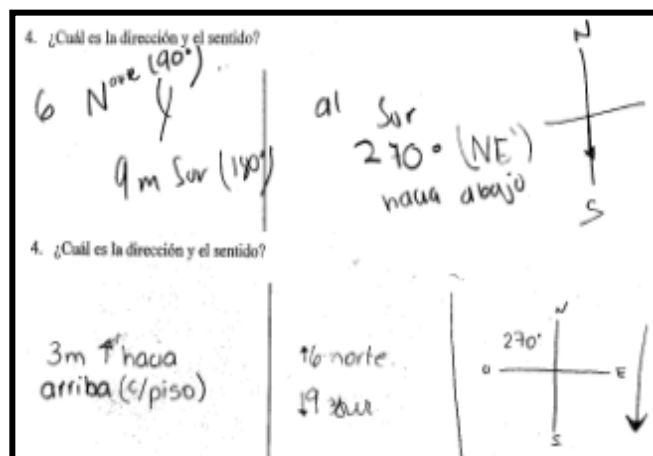 4. ¿Cuál es la dirección y el sentido?
6 Norte (90°)
y
9 m Sur (180°)
al Sur
270° (NE)
hacia abajo
N
S
4. ¿Cuál es la dirección y el sentido?
3m ↑ hacia
arriba (c/piso)
↑6 norte
↓9 sur
N
270°
O E
S